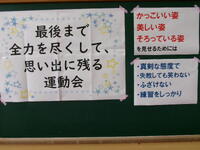 最後まで
全力を尽くして、
思い出に残る
運動会
かっこいい姿
美しい姿
そろっている姿
を見せるためには
・真剣な態度で
・失敗しても笑わない
・ふざけない
・練習をしっかり